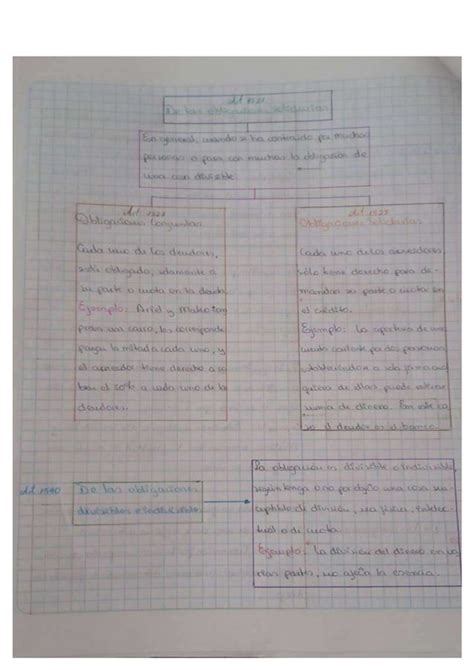 Art. 1521
De las obligaciones solidarias
En general, cuando se ha contraído por muchas
personas o para con muchas la obligación de
una cosa divisible
Obligaciones Conjuntas
Cada uno de los deudores,
está obligado, solamente a
su parte o cuota en la deuda
Ejemplo: Ariel y
un carro, les corresponde
pagar la mitad a cada uno, y
el acreedor tiene derecho a co
bar el 50% a cada uno de lo
deudores.
Obligaciones Solidarias
Cada uno de los acreedores
sólo tiene derecho para de-
mandar su parte o cuota en
el crédito.
Ejemplo: La apertura de una
cuenta corriente por dos personas
quiera de ellos puede retirar
suma de dinero. En este ca
so el deudor es el banco.
Art. 1540
De las obligaciones
divisibles e indivisible
La obligación es divisible o indivisible
según tenga o no por objeto una cosa sus
ceptible de división, sea física, intelec
tual o de cuota.
Ejemplo: La división del dinero en va
rias partes, no afecta la esencia.